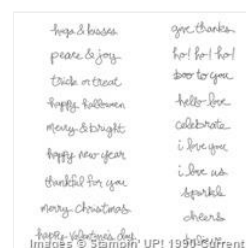 hugs & kisses
peace & joy
trick or treat
happy halloween
merry & bright
happy new year
thankful for you
merry Christmas
happy Valentine's day
give thanks
ho! ho! ho!
boo to you
hello love
celebrate
i love you
i love us
sparkle
cheers
believe
Images © Stampin' UP! 1990-Current